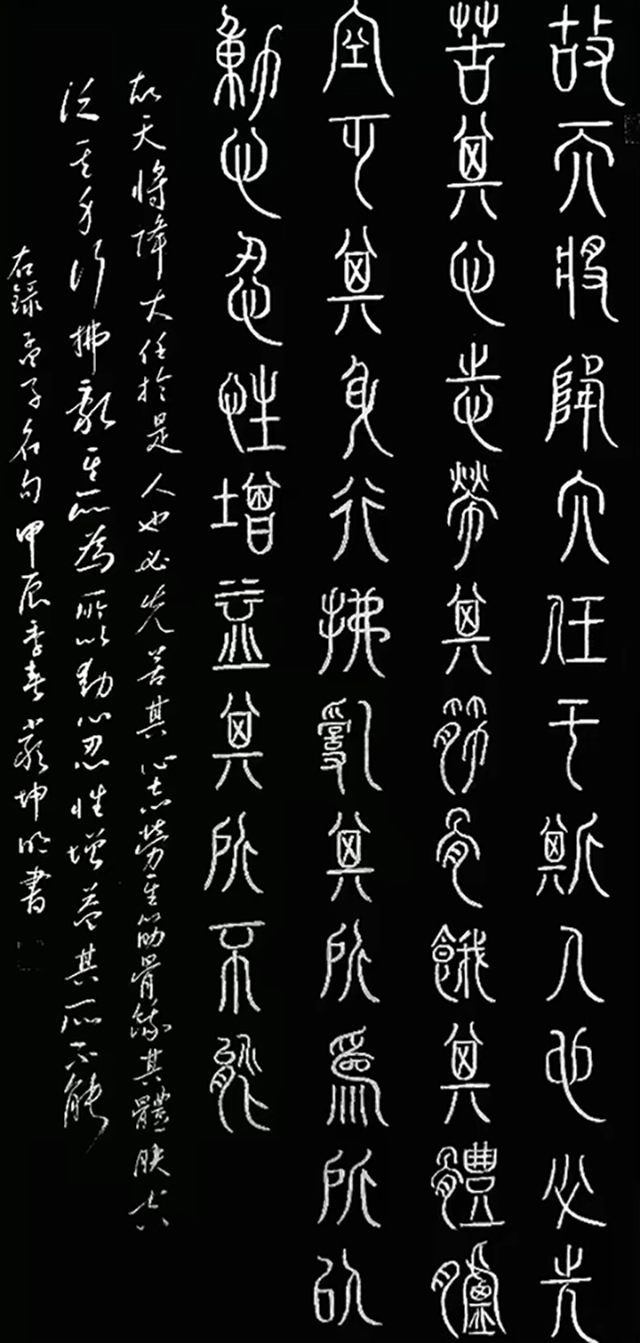 故天將降大任于斯人也必先
苦其心志勞其筋骨餓其體膚
空乏其身行拂亂其所爲所以
動心忍性增益其所不能
故天將降大任於是人也必先苦其心志勞其筋骨餓其體膚空
乏其身行拂亂其所為所以動心忍性增益其所不能
右錄孟子名句甲辰季春嚴坤明書